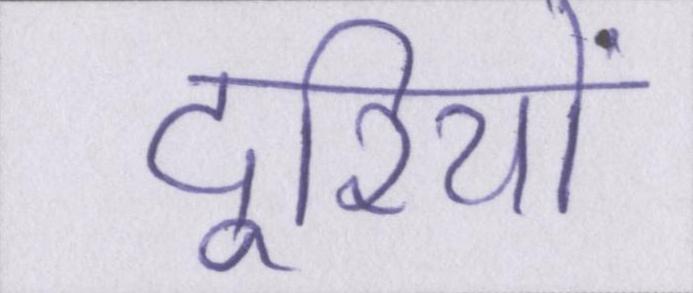 दूरियों